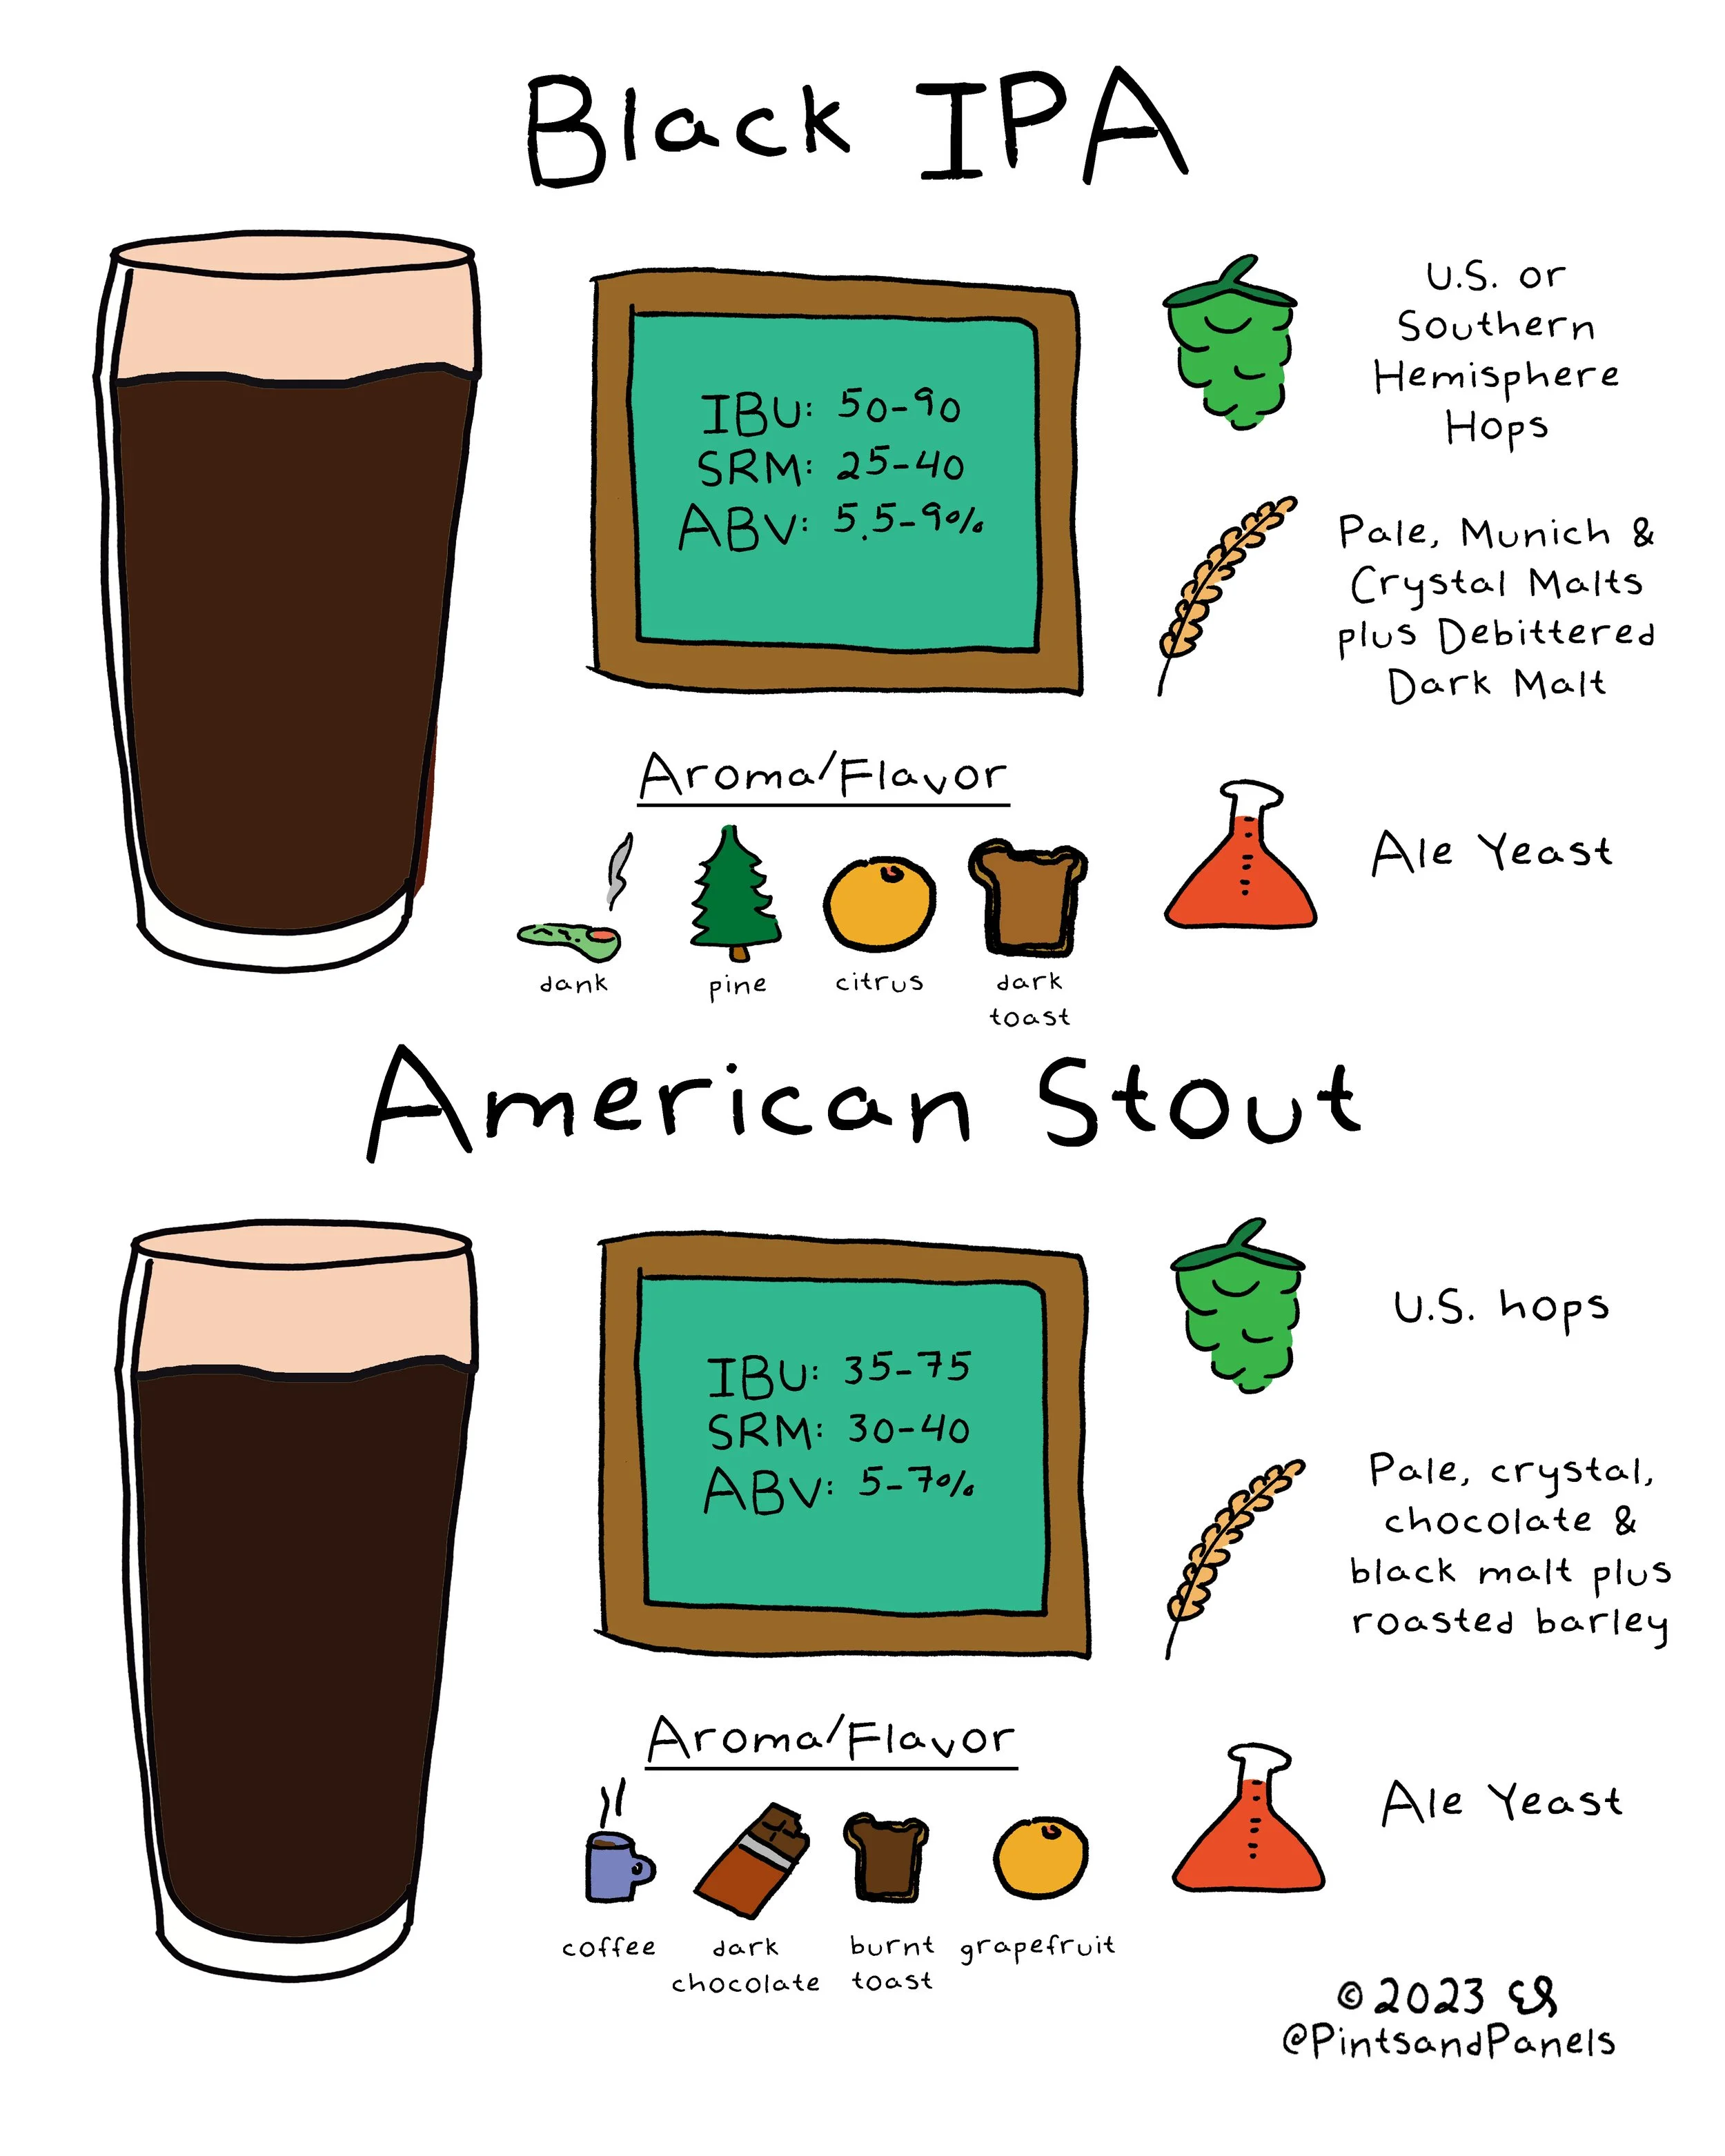 Black IPA
IBU: 50-90
SRM: 25-40
ABV: 5.5-9%
U.S. or
Southern
Hemisphere
Hops
Pale, Munich &
Crystal Malts
plus Debittered
Dark Malt
Ale Yeast
Aroma/Flavor
dank
pine
citrus
dark
toast
American Stout
IBU: 35-75
SRM: 30-40
ABV: 5-7%
U.S. hops
Pale, crystal,
chocolate &
black malt plus
roasted barley
Ale Yeast
Aroma/Flavor
coffee
dark
chocolate
burnt
toast
grapefruit
©2023
@PintsandPanels